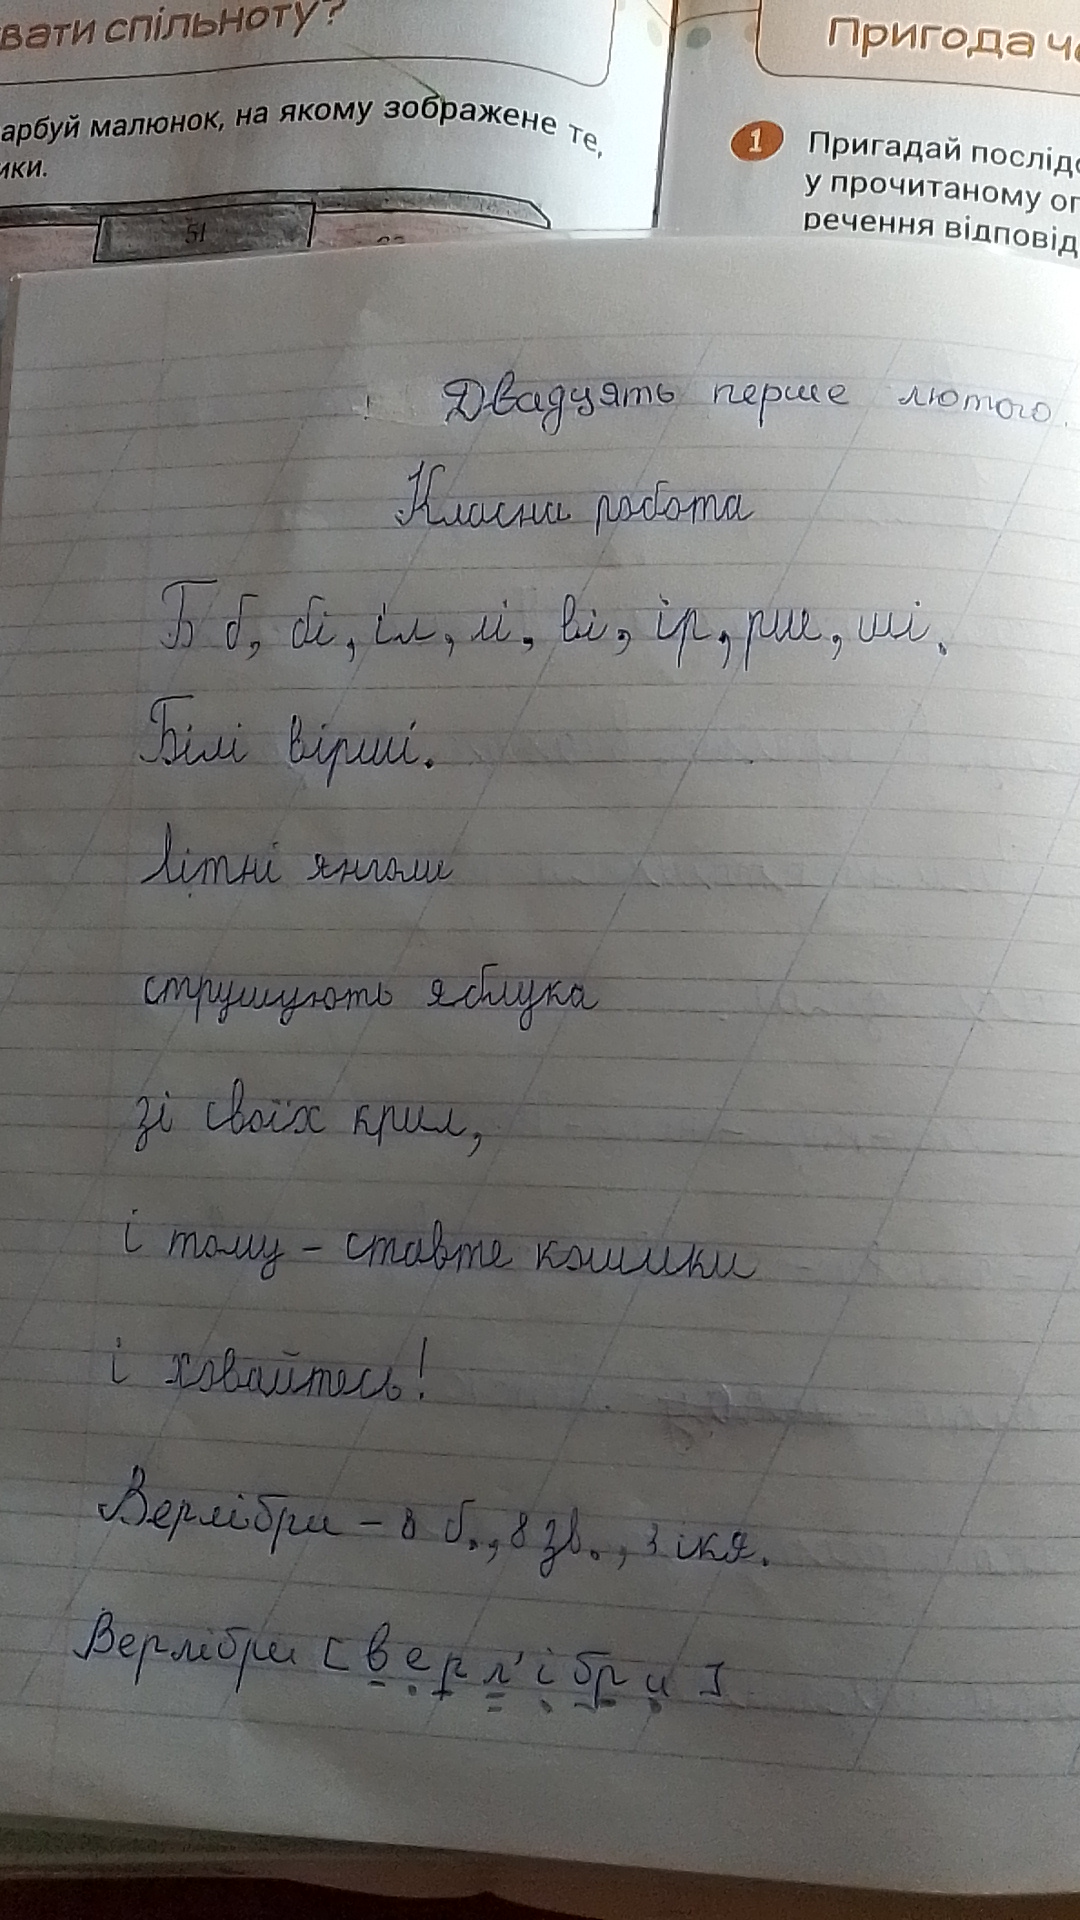 вати спільноту?
арбуй малюнок, на якому зображене те,
ики.
51
Пригода че
1 Пригадай послідо
у прочитаному оп
речення відповід
Двадцять перше лютого.
Класна робота
Б б, бі, іл, лі, ві, ір, рш, ші.
Білі вірші.
Літні янголи
струшують яблука
зі своїх крил,
і тому – ставте кошики
і ховайтесь!
Верлібри – 8 б., 8 зв., 3 скл.
Верлібри [верл'ібри]